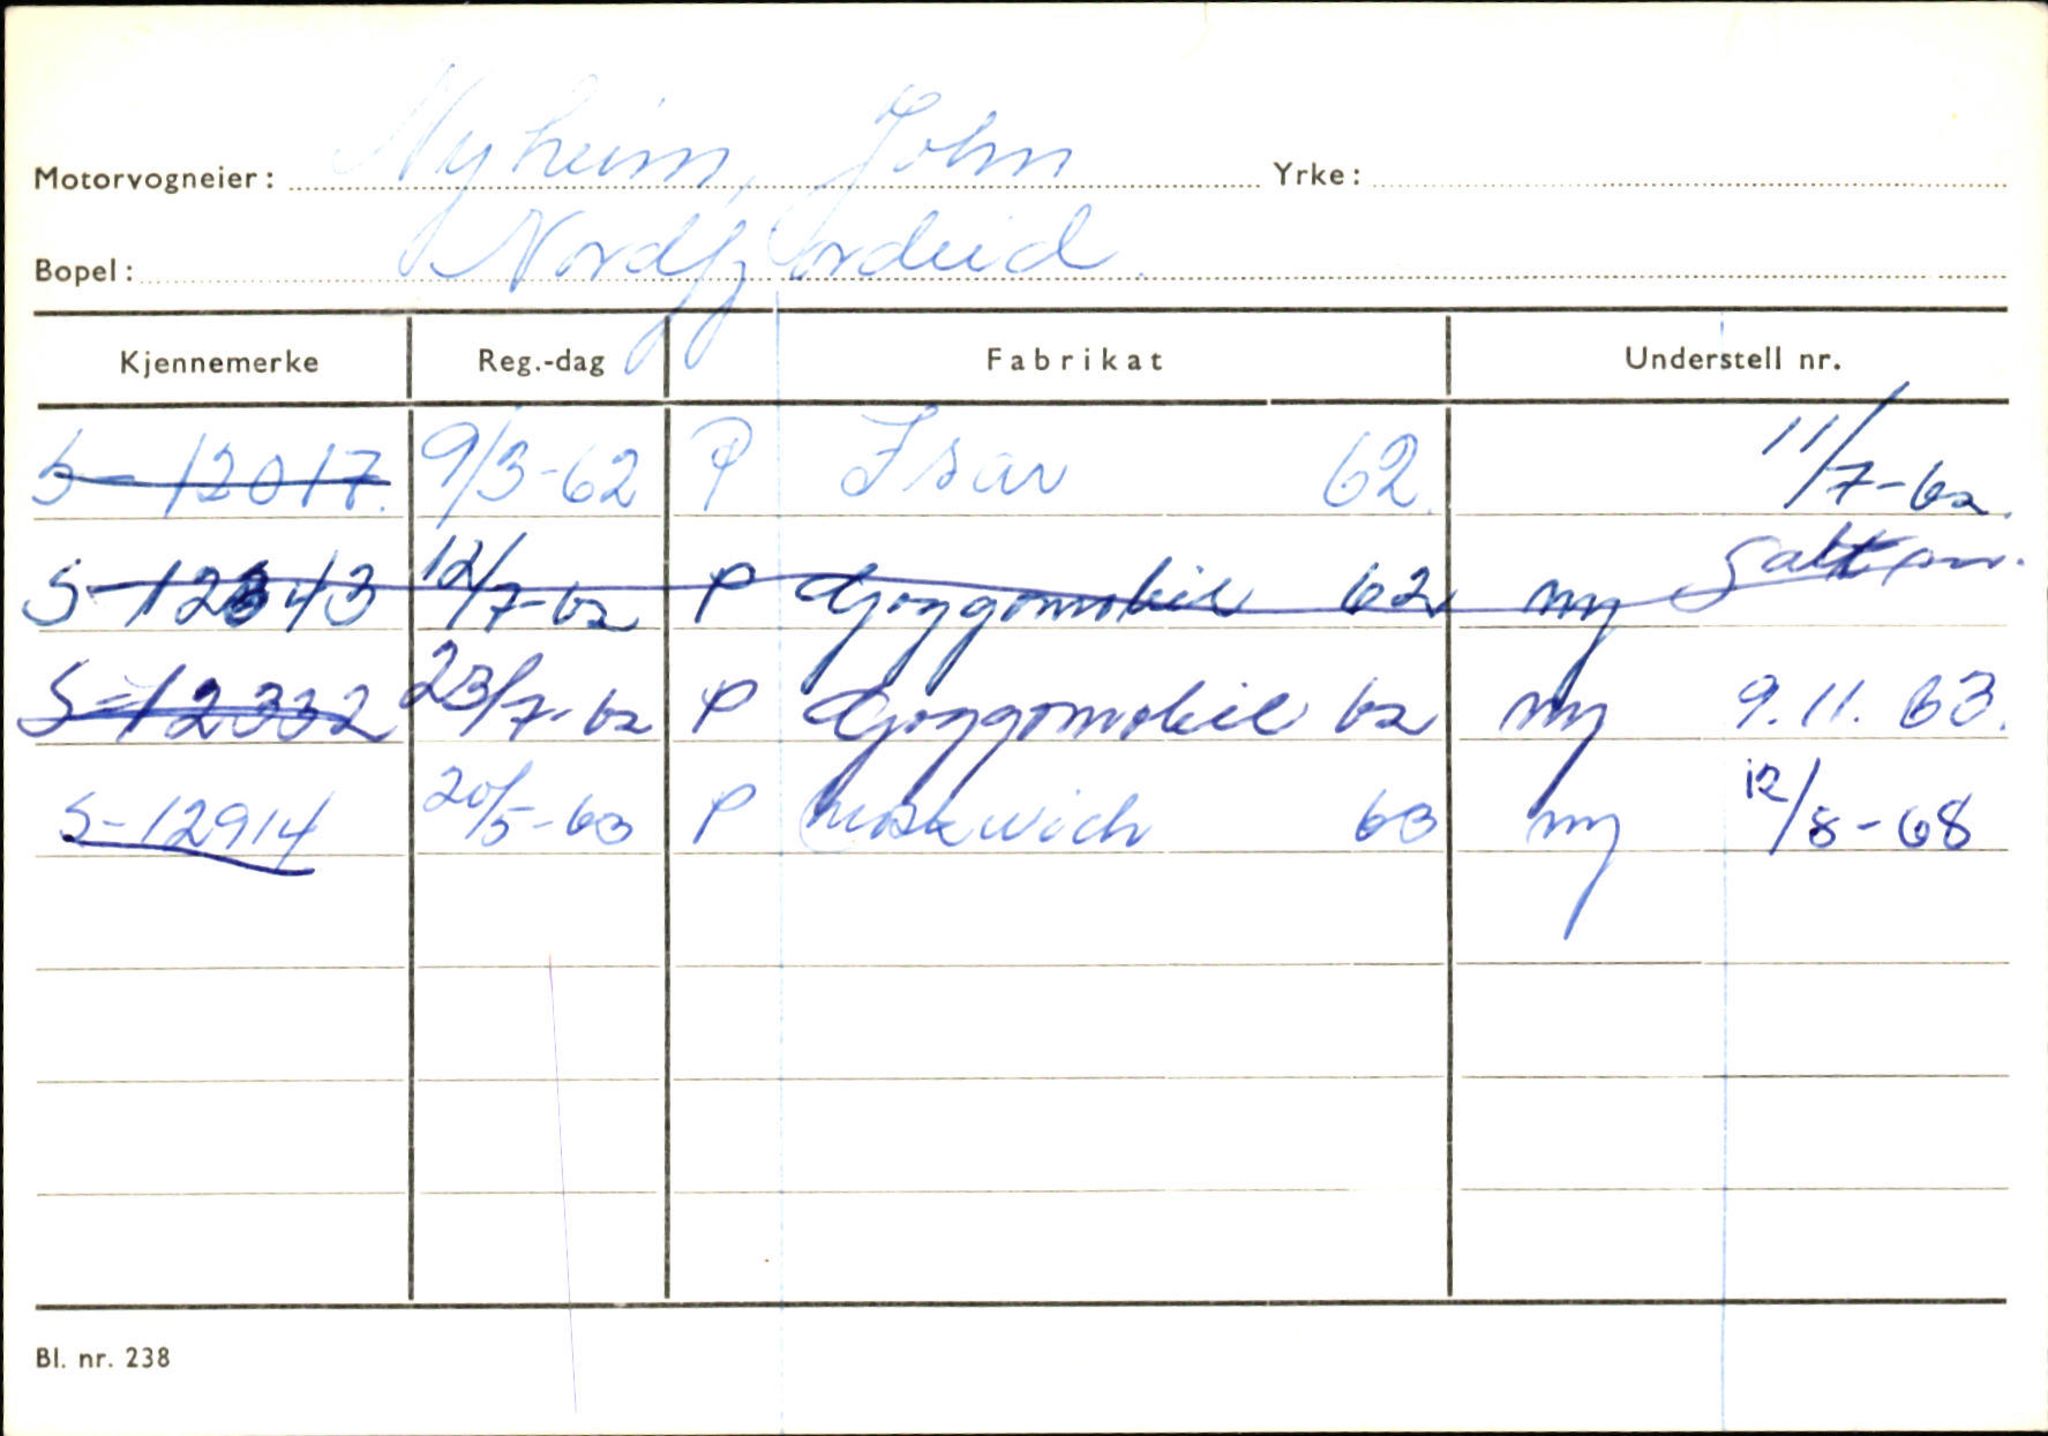 Motorvogneier: Nyheim, John Yrke:
Bopel: Nordfjordeid.
Kjennemerke Reg.-dag Fabrikat Understell nr.
S-12017. 9/3-62 P Isar 62. 11/7-62.
S-12343 12/7-62 P Goggomobil 62 ny
S-12332 23/7-62 P Goggomobil 62 ny 9.11.63.
S-12914 20/5-63 P Moskwich 63 ny 12/8-68
Bl. nr. 238